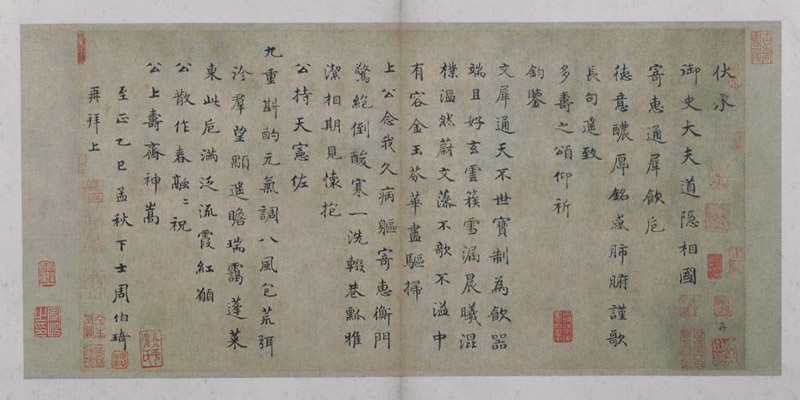 伏承
御史大夫道隐相國
寄惠通犀飲卮
德意醲厚銘感肺腑謹歌
長句遥致
多壽之頌仰祈
鈞鑒
文犀通天不世寶制為飲器
端且好玄雲蔟雪漏晨曦混
樸温然蔚文藻不歌不溢中
有容金玉芬華盡驅掃
上公念我久病軀寄惠衡門
驚絕倒酸寒一洗輟巷瓢雅
潔相期見懷抱
公持天憲佐
九重斟酌元氣調八風包荒弭
沴羣望顒遥瞻瑞靄蓬萊
東此卮滿泛流霞紅願
公散作春融〻祝
公上壽齊神嵩
至正乙巳孟秋下士周伯琦
再拜上